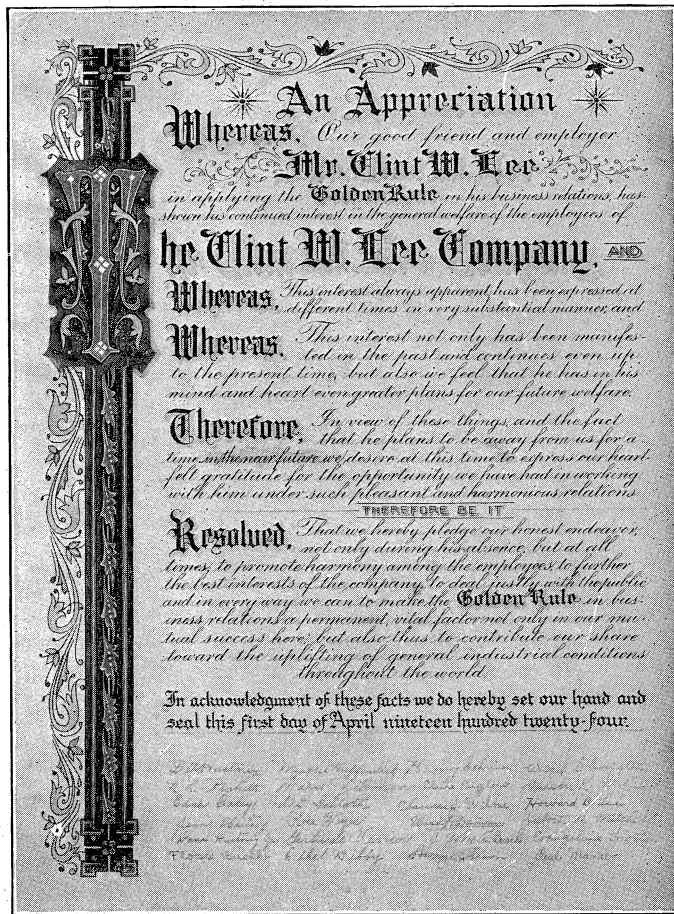 An Appreciation
Whereas, Our good friend and employer
Mr. Clint W. Lee
in applying the Golden Rule in his business relations, has
shown his continued interest in the general welfare of the employees of
The Clint W. Lee Company, AND
Whereas, This interest always apparent, has been expressed at
different times in very substantial manner, and
Whereas, This interest not only has been manifes-
ted in the past and continues even up
to the present time, but also we feel that he has in his
mind and heart even greater plans for our future welfare.
Therefore, In view of these things, and the fact
that he plans to be away from us for a
time in the near future we desire at this time to express our heart-
felt gratitude for the opportunity we have had in working
with him under such pleasant and harmonious relations
THEREFORE BE IT
Resolved, That we hereby pledge our honest endeavor,
not only during his absence, but at all
times, to promote harmony among the employees, to further
the best interests of the company, to deal justly with the public
and in every way we can to make the Golden Rule in bus-
iness relations a permanent, vital factor not only in our mu-
tual success here, but also thus to contribute our share
toward the uplifting of general industrial conditions
throughout the world.
In acknowledgment of these facts we do hereby set our hand and
seal this first day of April nineteen hundred twenty-four.
Howard
Rose
Gertrude
Ethel